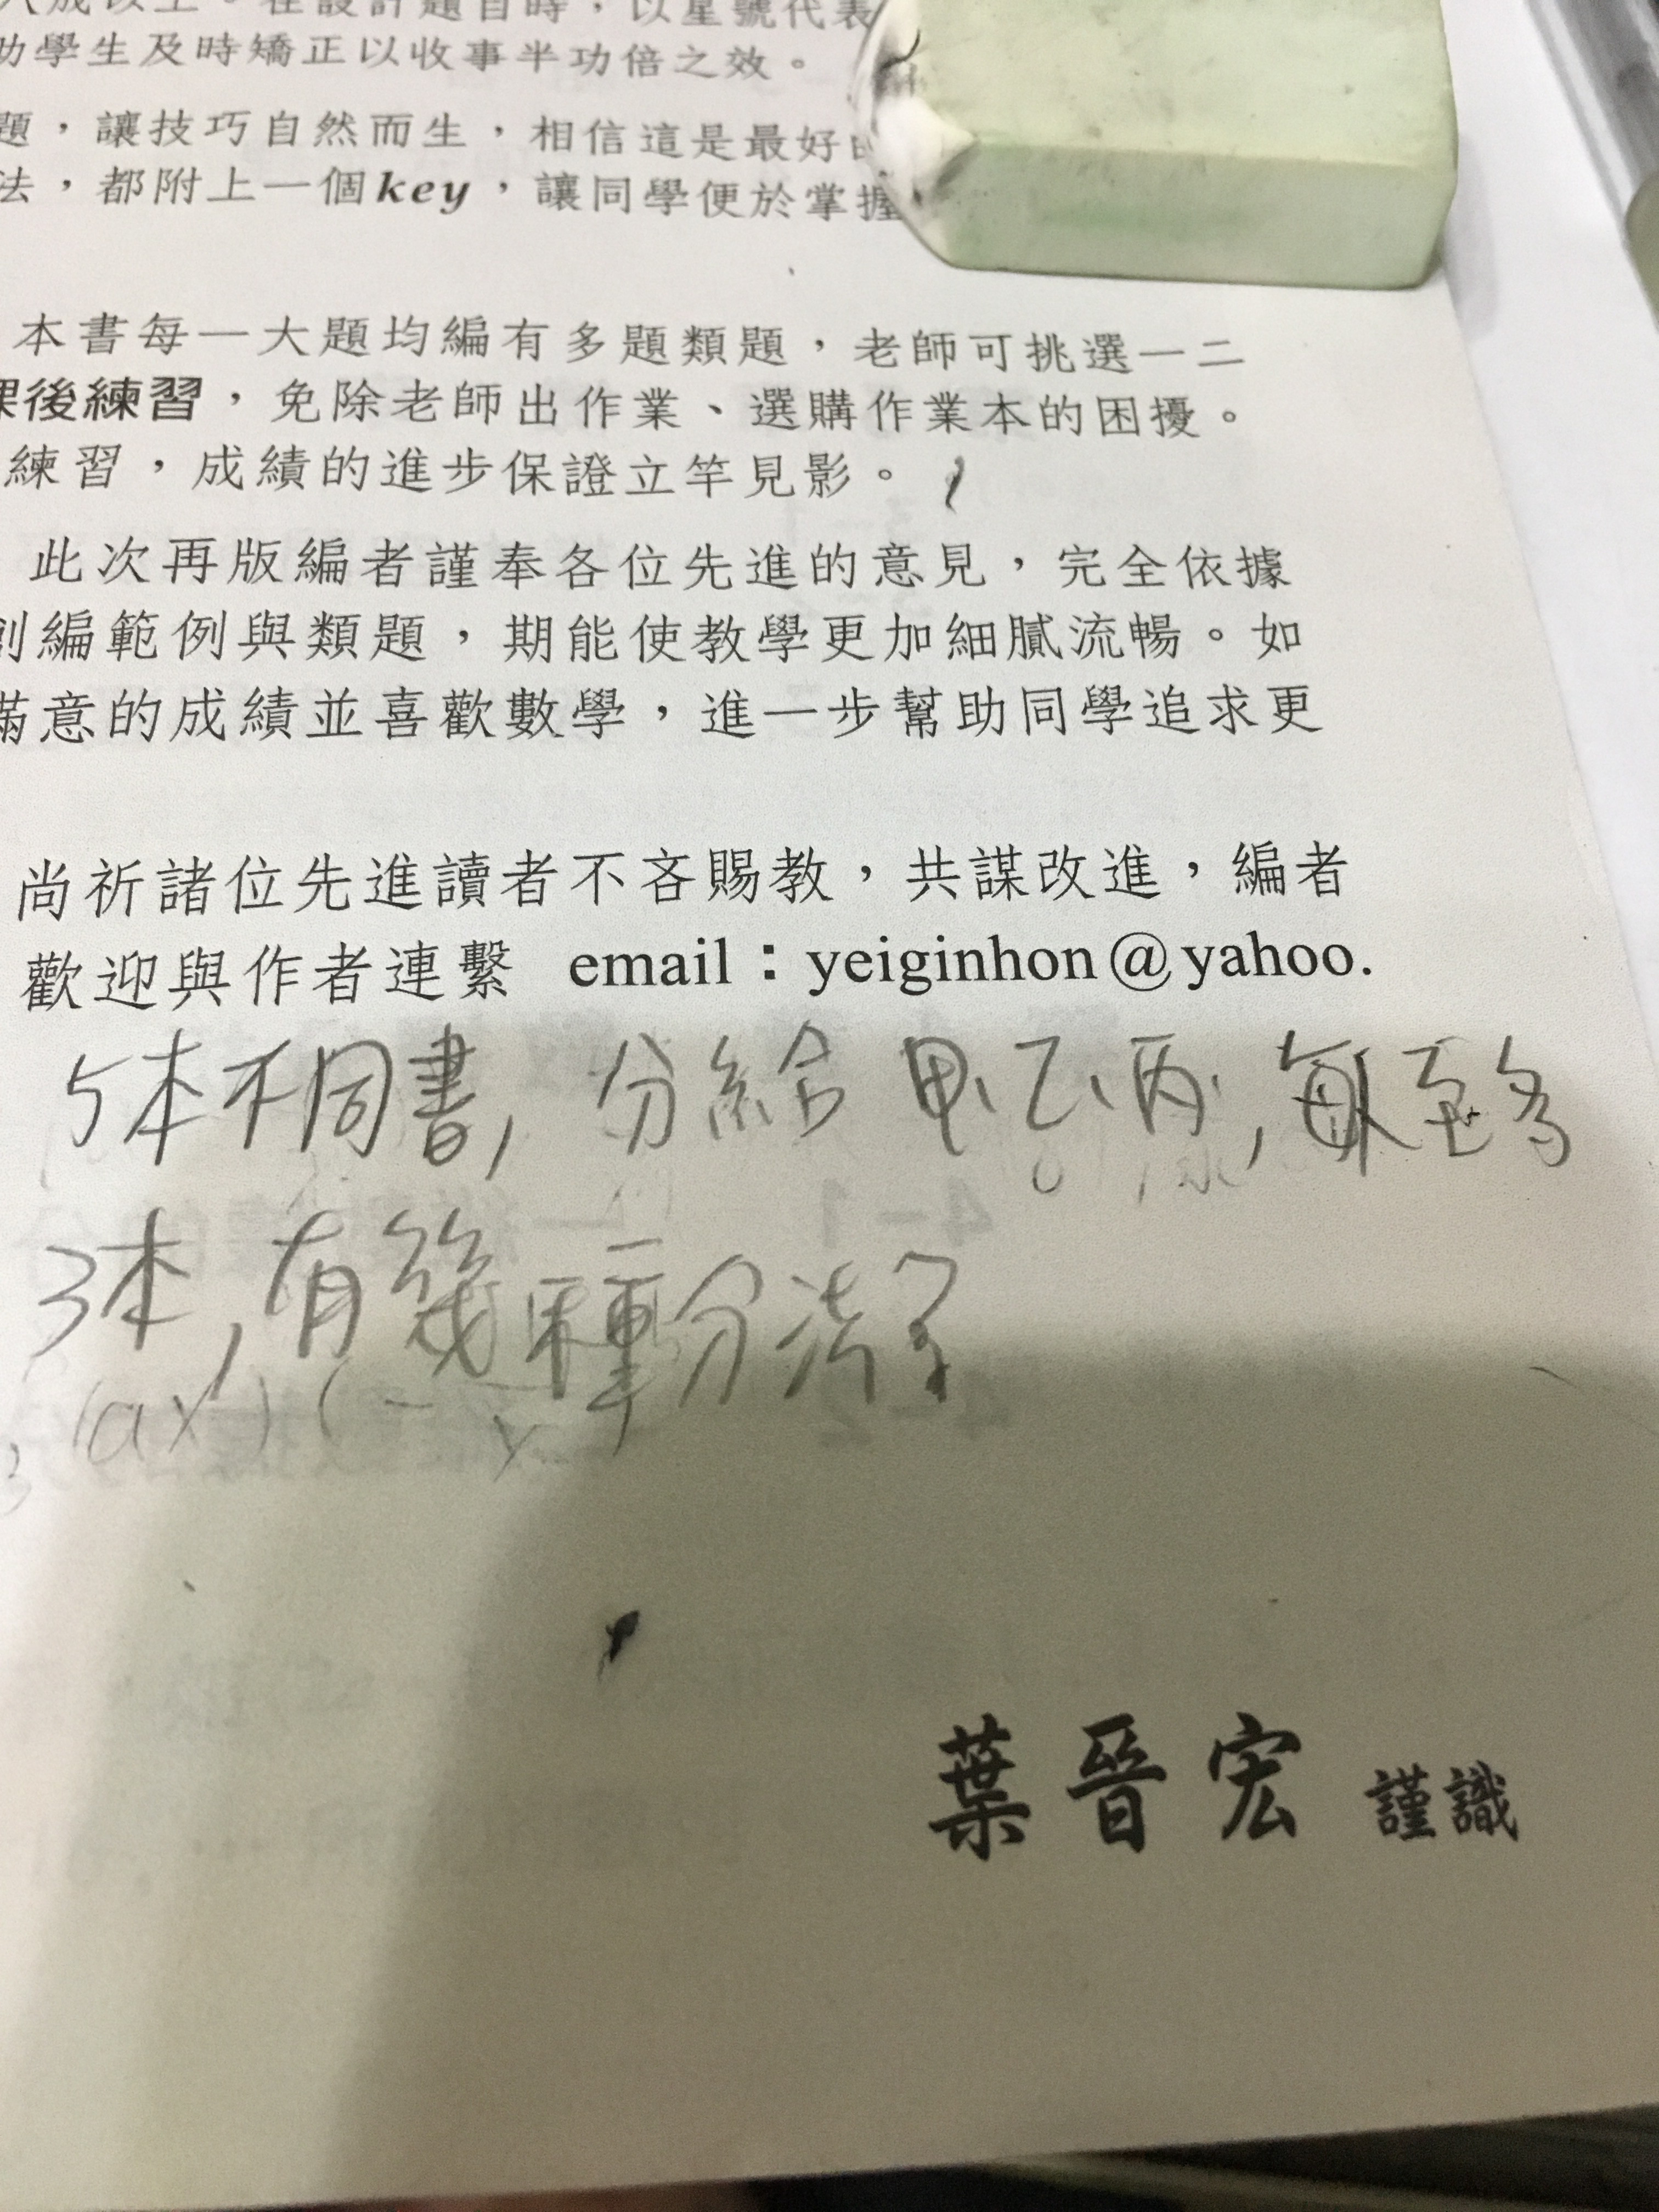 大成以上。在設計題目時，以星號代表
助學生及時矯正以收事半功倍之效。
題，讓技巧自然而生，相信這是最好的
法，都附上一個key，讓同學便於掌握
本書每一大題均編有多題類題，老師可挑選一二
課後練習，免除老師出作業、選購作業本的困擾。
練習，成績的進步保證立竿見影。
此次再版編者謹奉各位先進的意見，完全依據
創編範例與類題，期能使教學更加細膩流暢。如
滿意的成績並喜歡數學，進一步幫助同學追求更
尚祈諸位先進讀者不吝賜教，共謀改進，編者
歡迎與作者連繫 email：yeiginhon@yahoo.
5本不同書，分給甲、乙、丙，每人至多
3本，有幾種分法？
葉晉宏 謹識